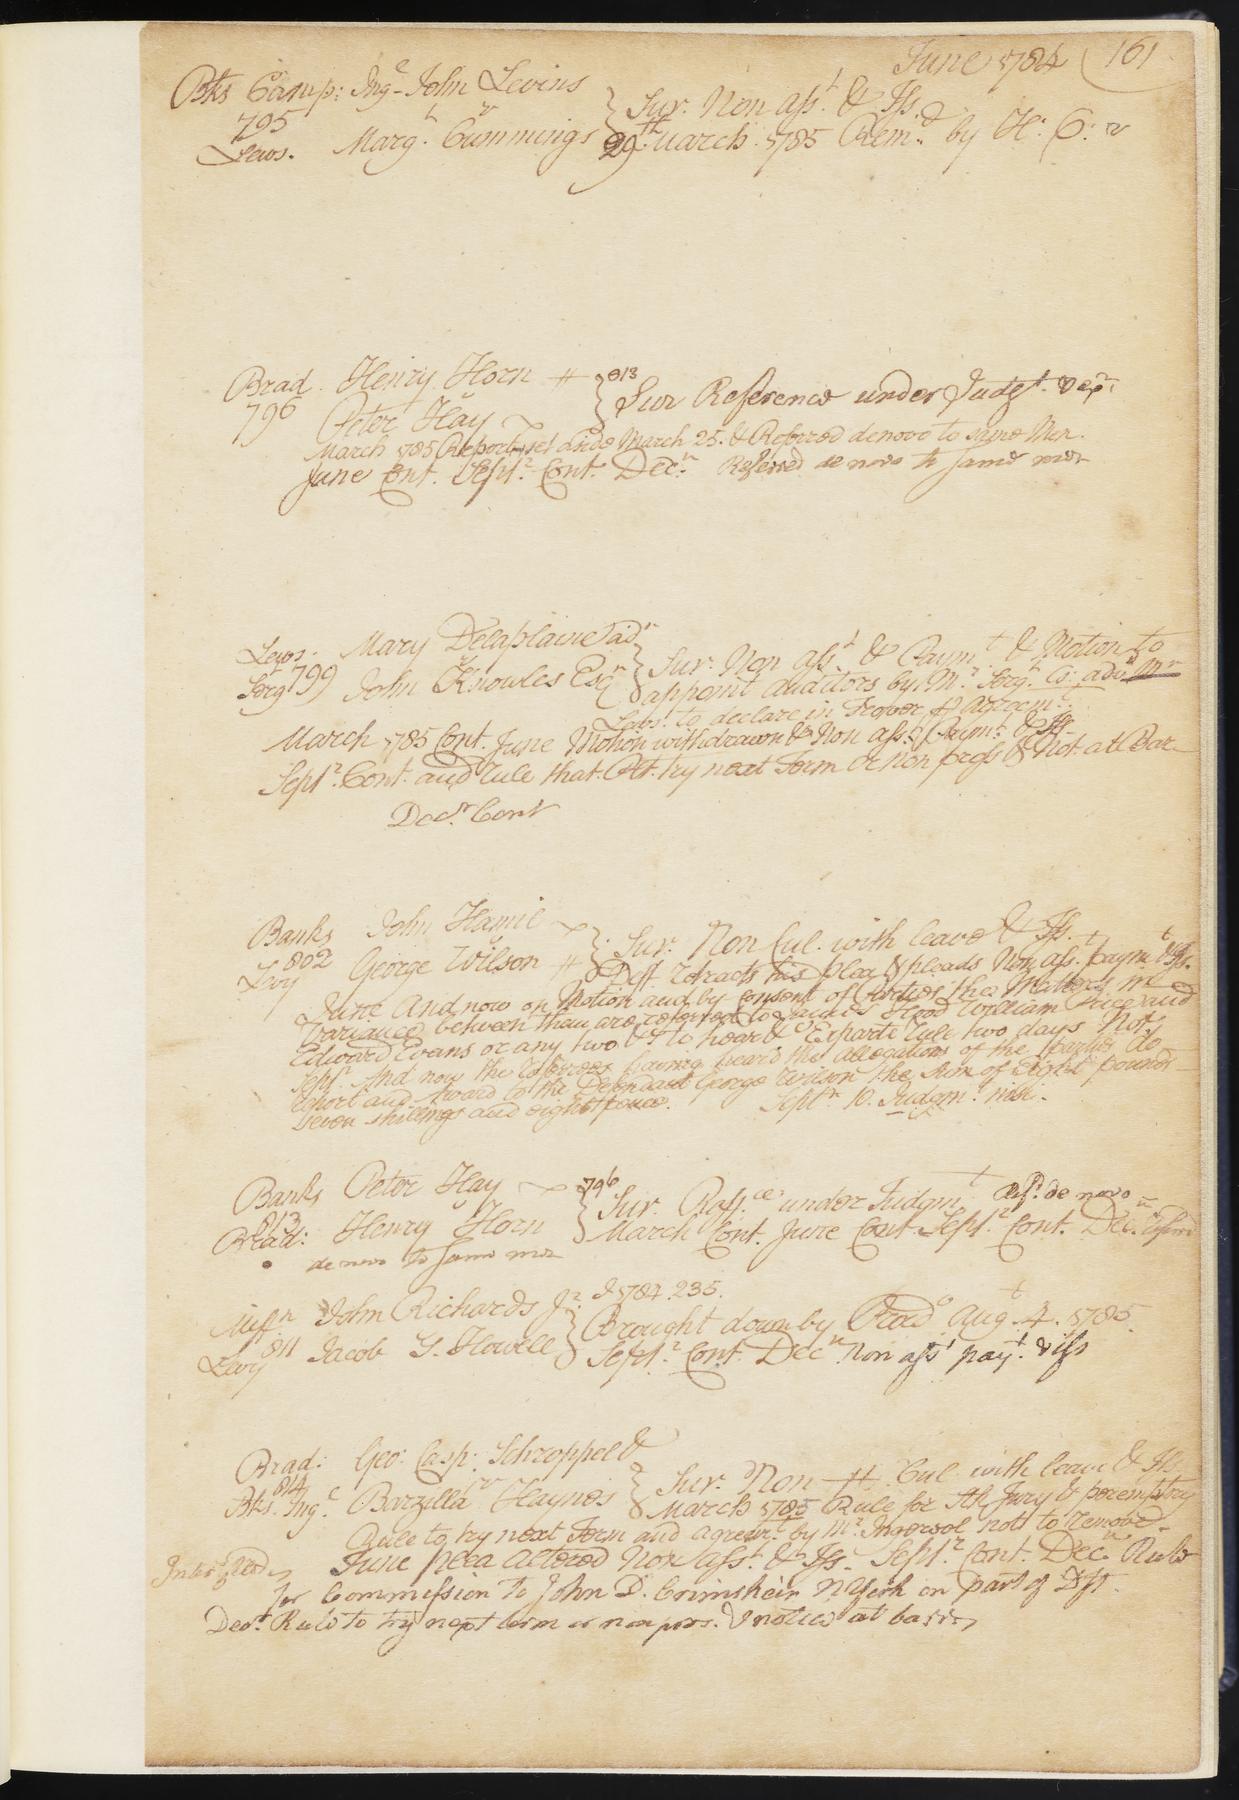 June 1784 (161
Bks Camp: Ing.e John Levins
795 } Sur. Non ass.t & Iss.
Lews. Marg.t Cummings 29th March 1785 Rem.d by H: C: r
Brad. Henry Horn # } 813
796 v Sur Reference under Judg.t Dep.
Peter Hay
March 1785 Report set aside March 25. & Referred denovo to same Men.
June Cont. Sept.r Cont. Dec.r Referred de novo to same men
Lews. Mary Delaplaine ad.x
799 v } Sur. Non ass.t & Paym.t & Motion to
Serg.t John Knowles Esq.r appoint auditors by M.r Serg.t Co: adv.s M.r
Labs.t to declare in Trover Agreem.t
March 1785 Cont. June Motion withdrawn & Non ass.t Paym.t & Iss
Sept.r Cont. and rule that Plt. try next Term or non pross & Not. at Bar
Dec.r Cont
Banks John Hamil
802 v } Sur. Non Cul. with leave & Iss.
Levy George Wilson # Deft retracts his plea & pleads Non ass.t paym.t & Iss.
June And now on Motion and by Consent of Parties the Matters in
Variance between them are referred to James Hood William Price and
Edward Evans or any two & to hear & Exparte rule two days Not.
Sept.r And now the Referees having heard the allegations of the parties do
report and award to the Defendant George Wilson the Sum of Eight pounds
seven shillings and eight pence. Sept.r 10. Judgm.t nisi.
Banks Peter Hay } 796
813 v Sur. Ref.ce under Judgm.t Ref.d de novo
Brad: Henry Horn March Cont. June Cont. Sept.r Cont. Dec.r referred
de novo to same men
Miff.n John Richards J.r J 1784. 235.
811 } Brought down by Proced.o Aug.t 4. 1785
Levy Jacob S. Howell Sept.r Cont. Dec.r Non ass.t pay.t & iss
Brad: Geo: Casp: Schroppel &
814 v } Sur. Non # Cul. with leave & Iss
Bks. Ing.e Barzilla Haynes March 1785 Rule for Jury & peremptory
Rule to try next Term and agreem.t by M.r Ingersol not to remove
June plea altered Non ass.t & Iss. Sept.r Cont. Dec.r Rule
for Commission to John D. N York on part of Dft.
Dec.r Rule to try next term or non pros. & notice at bar